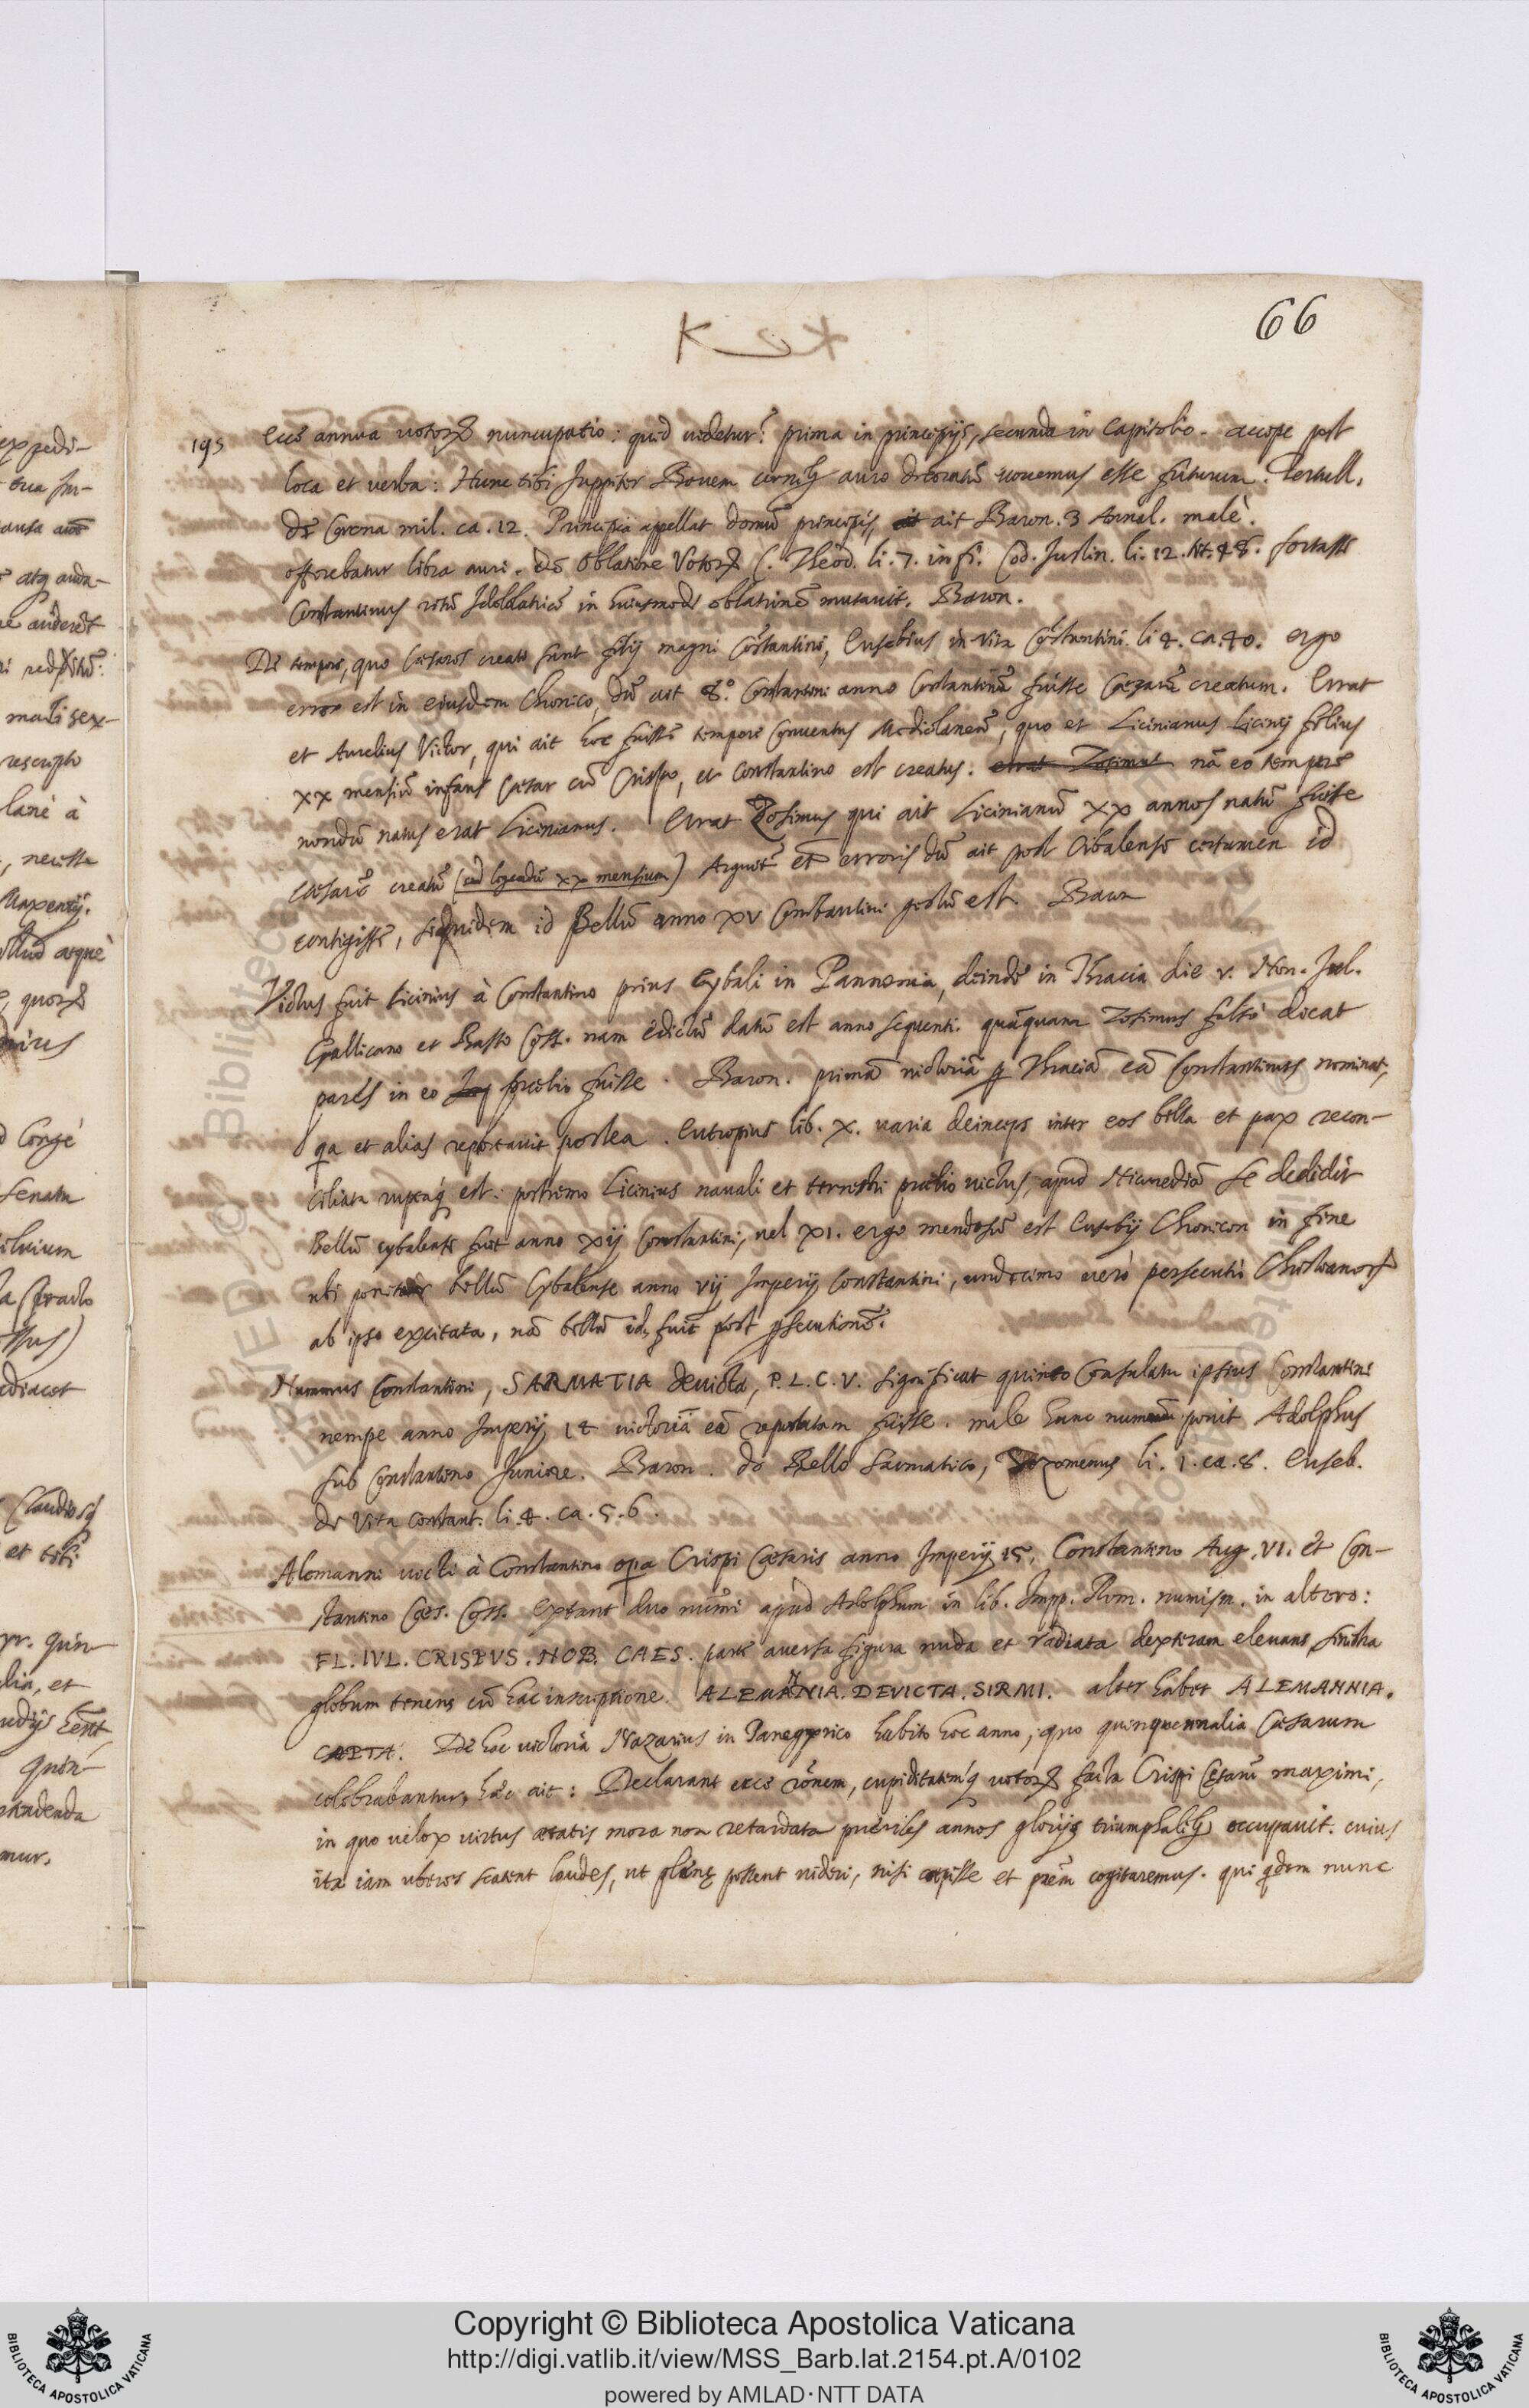 66
195 Ecce annua votorꝝ nuncupatio: quid videtur? prima in principijs, secunda in Capitolio. accipe post
loca et verba: Hunc tibi Juppiter Bovem cornibꝰ auro decoratū vovemus esse futurum. Tertull.
de Corona mil. ca. 12. Principia appellat domū principis, ait Baron. 3 Annal. malè.
offerebatur libra auri. de oblatione Votorꝝ C. Theod. li. 7. in fi. Cod. Justin. li. 12. tit. 48. fortasse
Constantinus ritū Idololatricū in huiusmodi oblationē mutavit. Baron.
De tempore, quo Caesares creati sunt filij magni Cōstantini, Eusebius in vita Cōstantini. li 4. ca. 40. ergo
error est in eiusdem Chronico, dū ait 8.° Constantini anno Constantinū fuisse Caesarē creatum. Errat
et Aurelius Victor, qui ait hoc fuisse tempore Conventus Mediolanen̄, quo et Licinianus Licinij filius
xx mensiū infans Caesar cū Crispo, et Constantino est creatus. errat Zosimus nā eo tempore
nondū natus erat Licinianus. Errat Zosimus qui ait Licinianū xx annos natū fuisse
Caesarē creatū (sed legendū xx mensium) Arguit et erroris dū ait post Cibalense certamen id
contigisse, siquidem id Bellū anno XV Constantini gestū est. Baron
Victus fuit Licinius à Constantino prius Cybali in Pannonia, deinde in Thracia die v. Non. Jul.
Gallicano et Basso Coss. nam edictū datū est anno sequenti. quāquam Zosimus falsò docat
pares in eo praelio fuisse. Baron. primā victoriā ꝑ Thraciā eā Constantinus nominat,
qa et alias reportavit postea. Eutropius lib. X. varia deinceps inter eos bella et pax recon-
ciliata ruptaq́ est: postremo Licinius navali et terrestri praelio victus, apud Nicomediā se dedidit
Bellū cybalense fuit anno xij Constantini, vel XI. ergo mendosū est Eusebij Chronicon in fine
ubi ponitur bellū Cybalense anno vij Imperij Constantini, undecimo verò persecutio Christianorꝝ
ab ipso excitata, nā bellū id fuit post ꝑsecutionē.
Nummus Constantini, SARMATIA devicta, P. L. C. V. significat quinto Consulatu ipsius Constantini
nempe anno Imperij 14 victoriā eā reportatam fuisse. male hunc nummū ponit Adolphus
sub Constantino Juniore. Baron. de Bello Sarmatico, Sozomenus li. 1. ca. 8. Euseb.
de vita Constant. li. 4. ca. 5. 6.
Alemanni victi à Constantino opa Crispi Caesaris anno Imperij 15, Constantino Aug. VI. et Con-
stantino Caes. Coss. Extant duo num̄i apud Adolphum in lib. Impp. Rom. numism. in altero:
FL. IVL. CRISPVS. NOB. CAES. parte aversa figura nuda et radiata dexteram elevans, sinistra
globum tenens cū hac inscriptione ALEMANNIA. DEVICTA. SIRMI. alter habet ALEMANNIA.
CAPTA. De hac victoria Nazarius in Panegyrico habito hoc anno, quo quinquennalia Caesarum
celebrabantur, haec ait: Declarant ecce rōnem, cupiditatemq́ votorꝝ facta Crispi Cęsarū maximi,
in quo velox virtus aetatis mora non retardata pueriles annos glorijs triumphalibꝰ occupavit. cuius
ita iam uberes scatent laudes, ut plenę possent videri, nisi cœpisse et prēm cogitaremus. qui qdem nunc
Copyright © Biblioteca Apostolica Vaticana
http://digi.vatlib.it/view/MSS_Barb.lat.2154.pt.A/0102
powered by AMLAD·NTT DATA
BIBLIOTECA APOSTOLICA VATICANA
BIBLIOTECA APOSTOLICA VATICANA